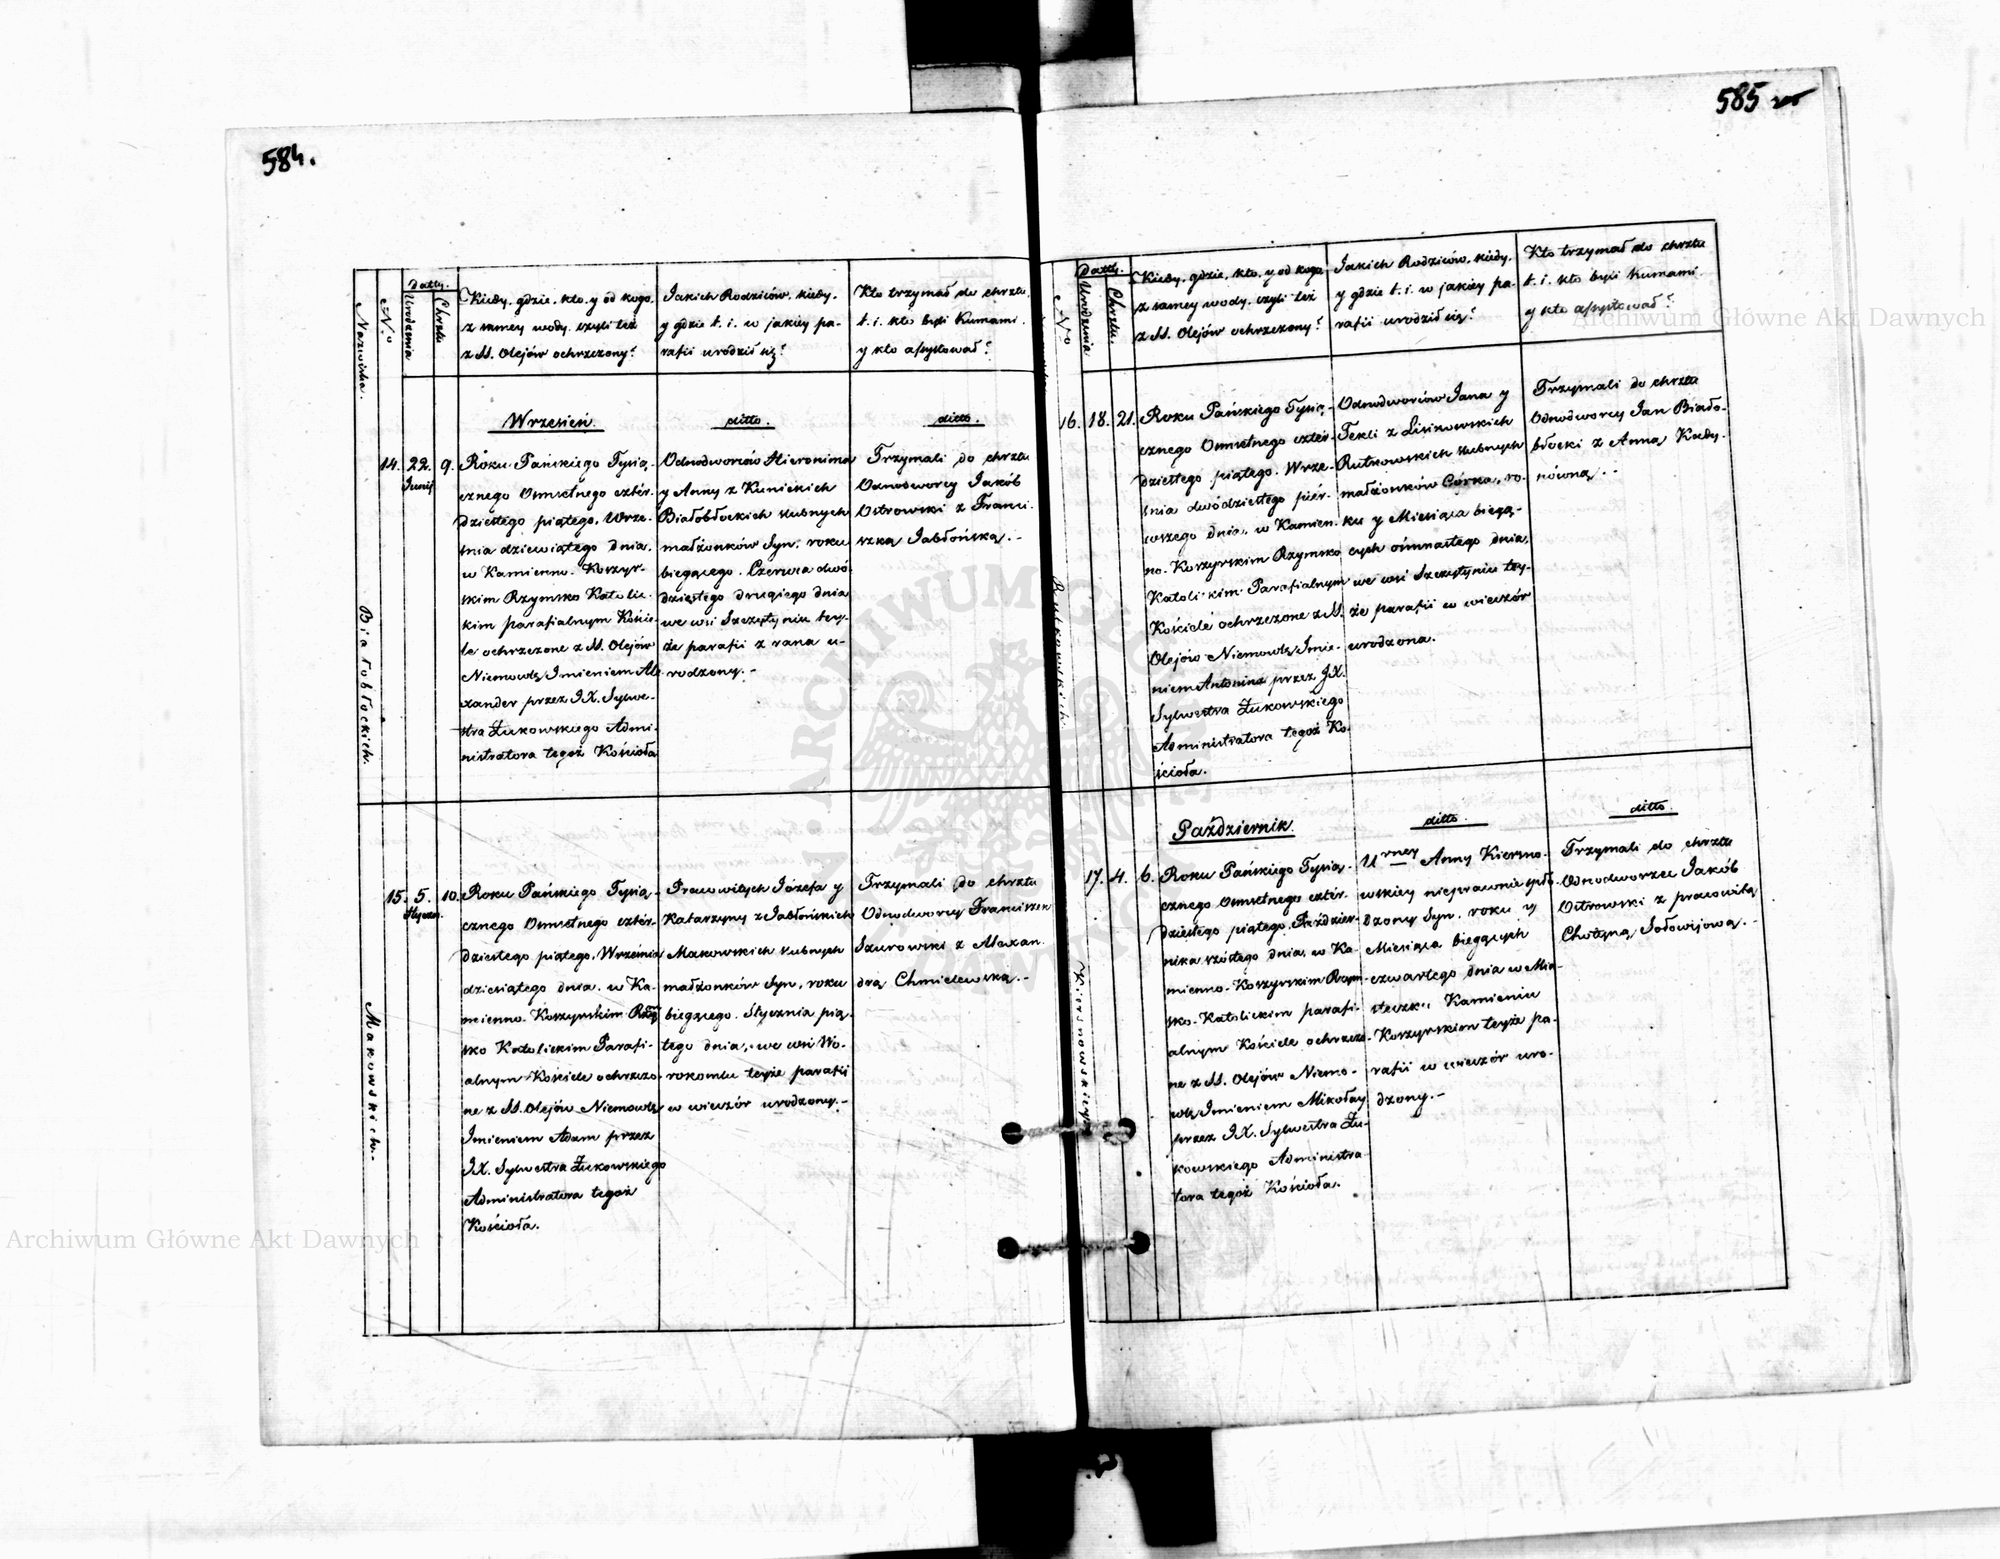 584.
Datty.
Nazwiska.
No
Urodzenia
Chrztu
Kiedy, gdzie, kto, y od kogo,
z samey wody, czyli też
z SS. Olejów ochrzczony?
Jakich Rodziców, kiedy,
y gdzie t. i. w jakiey pa-
rafii urodził się?
Kto trzymał do chrztu,
t. i. kto byli Kumami,
y kto assystował?
Wrzesień.
ditto.
ditto.
Białobłockich.
14. 22. 9.
Junij
Roku Pańskiego Tysią-
cznego Osmsetnego czter-
dziestego piątego, Wrze-
śnia dziewiątego dnia,
w Kamienno-Koszyr-
skim Rzymsko Katolic-
kim parafialnym Koście-
le ochrzczone z SS. Olejów
Niemowlę, Imieniem Ale-
xander przez JX. Sylwe-
stra Żukowskiego Admi-
nistratora tegoż Kościoła
Odnodworców Hieronima
y Anny z Kunickich
Białobłockich ślubnych
małżonków Syn, roku
biegącego, Czerwca dwó-
dziestego drugiego dnia
we wsi Szczętyniu tey-
że parafii z rana u-
rodzony.-
Trzymali do chrztu
Odnodworcy Jakób
Ostrowski z Franci-
szką Jabłońską.-
Makowskich.-
15. 5. 10.
Stycznia
Roku Pańskiego Tysią-
cznego Osmsetnego czter-
dziestego piątego, Września
dziesiątego dnia, w Ka-
mienno-Koszyrskim Rzym
sko Katolickim Parafi-
alnym Kościele ochrzczo-
ne z SS. Olejów Niemowlę
Imieniem Adam przez
JX. Sylwestra Żukowskiego
Administratora tegoż
Kościoła.
Pracowitych Józefa y
Katarzyny z Jabłońskich
Makowskich ślubnych
małżonków Syn, roku
biegącego, Stycznia pią-
tego dnia, we wsi Wo-
rokomlu teyże parafii
w wieczór urodzony.-
Trzymali do chrztu
Odnodworcy Franciszek
Szurowski z Alexan-
drą Chmielewską.-
585
Datty.
No
Urodzenia
Chrztu.
Kiedy, gdzie, kto, y od kogo,
z samey wody, czyli też
z SS. Olejów ochrzczony?
Jakich Rodziców, kiedy,
y gdzie t. i. w jakiey pa-
rafii urodził się?
Kto trzymał do chrztu
t. i. kto byli Kumami
y kto assystował?
Rutkowskich
16. 18. 21.
Roku Pańskiego Tysią-
cznego Osmsetnego czter-
dziestego piątego, Wrze-
śnia dwódziestego pier-
wszego dnia, w Kamien-
no-Koszyrskim Rzymsko
Katolickim Parafialnym
Kościele ochrzczone z SS.
Olejów Niemowlę, Imie-
niem Antonina przez JX.
Sylwestra Żukowskiego
Administratora tegoż Ko-
ścioła.
Odnodworców Jana y
Tekli z Lisikowskich
Rutkowskich ślubnych
małżonków Córka, ro-
ku y Miesiąca biegą-
cych ośmnastego dnia,
we wsi Szczętyniu tey-
że parafii w wieczór
urodzona.
Trzymali do chrztu
Odnodworcy Jan Biało-
błocki z Anną Kudy-
nówną.-
Październik.
ditto.
ditto.
Kiersnowskiey
17. 4. 6.
Roku Pańskiego Tysią-
cznego Osmsetnego czter-
dziestego piątego, Paździer-
nika szóstego dnia, w Ka-
mienno-Koszyrskim Rzym-
sko-Katolickim parafi-
alnym Kościele ochrzczo-
ne z SS. Olejów Niemo-
wlę, Imieniem Mikołay
przez JX. Sylwestra Żu-
kowskiego Administra-
tora tegoż Kościoła.
Urney Anny Kiersno-
wskiey nieprawnie spło-
dzony Syn, roku y
Miesiąca biegących
czwartego dnia w Mia-
steczku Kamieniu
Koszyrskim teyże pa-
rafii w wieczór uro-
dzony.-
Trzymali do chrztu
Odnodworzec Jakób
Ostrowski z pracowitą
Chotyną Sołowijową.-
Archiwum Główne Akt Dawnych
Archiwum Główne Akt Dawnych